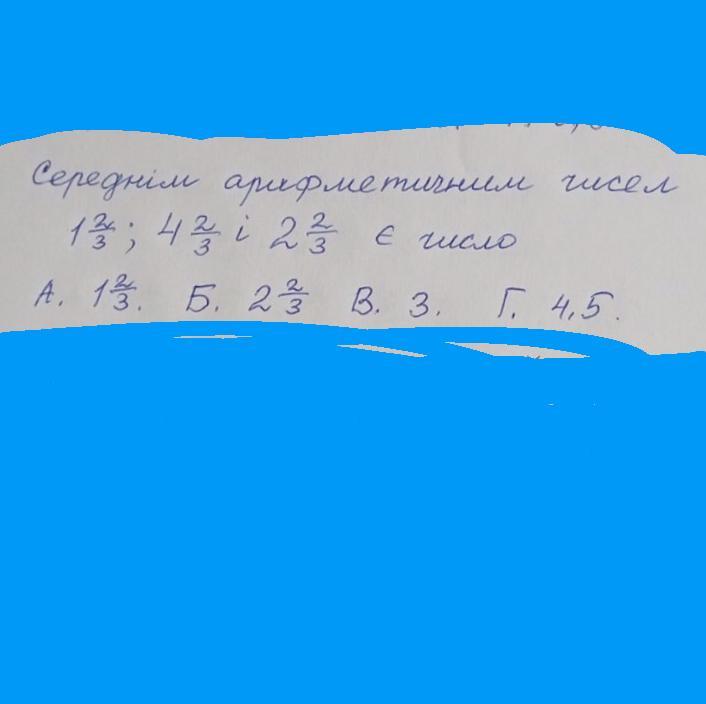 Середнім арифметичним чисел
1 2/3; 4 2/3 і 2 2/3 є число
А. 1 2/3. Б. 2 2/3 В. 3. Г. 4,5.